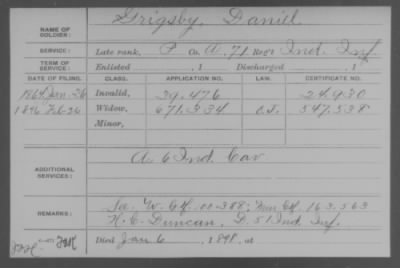 NAME OF SOLDIER: Grigsby, Daniel
SERVICE: Late rank, P Co. A, 71 Reg't Ind. Inf.
TERM OF SERVICE: Enlisted , 1 Discharged , 1
DATE OF FILING. CLASS. APPLICATION NO. LAW. CERTIFICATE NO.
1864 Jan. 26 Invalid, 39.476 24.930
1896 Feb 26 Widow, 671.334 547.538
Minor,
ADDITIONAL SERVICES: A 6 Ind. Cav
REMARKS: W. Ctf. 100-388; Min Ctf. 163.563
H. C. Duncan, D. 51 Ind. Inf.
Died Jan 6 , 1898, at